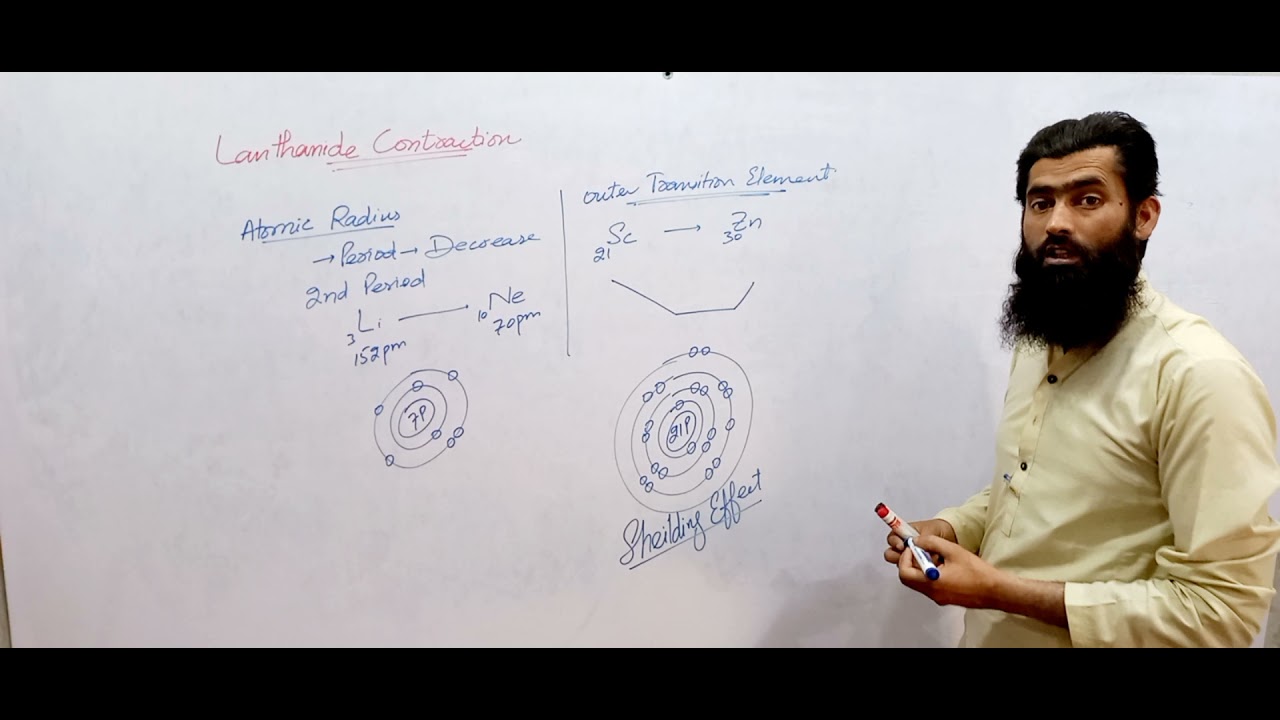 Lanthanide Contraction
Atomic Radius
→ Period → Decrease
2nd Period
₃Li ⟶ ₁₀Ne
152pm 70pm
7P
Outer Transition Element
₂₁Sc → ₃₀Zn
21P
Sheilding Effect